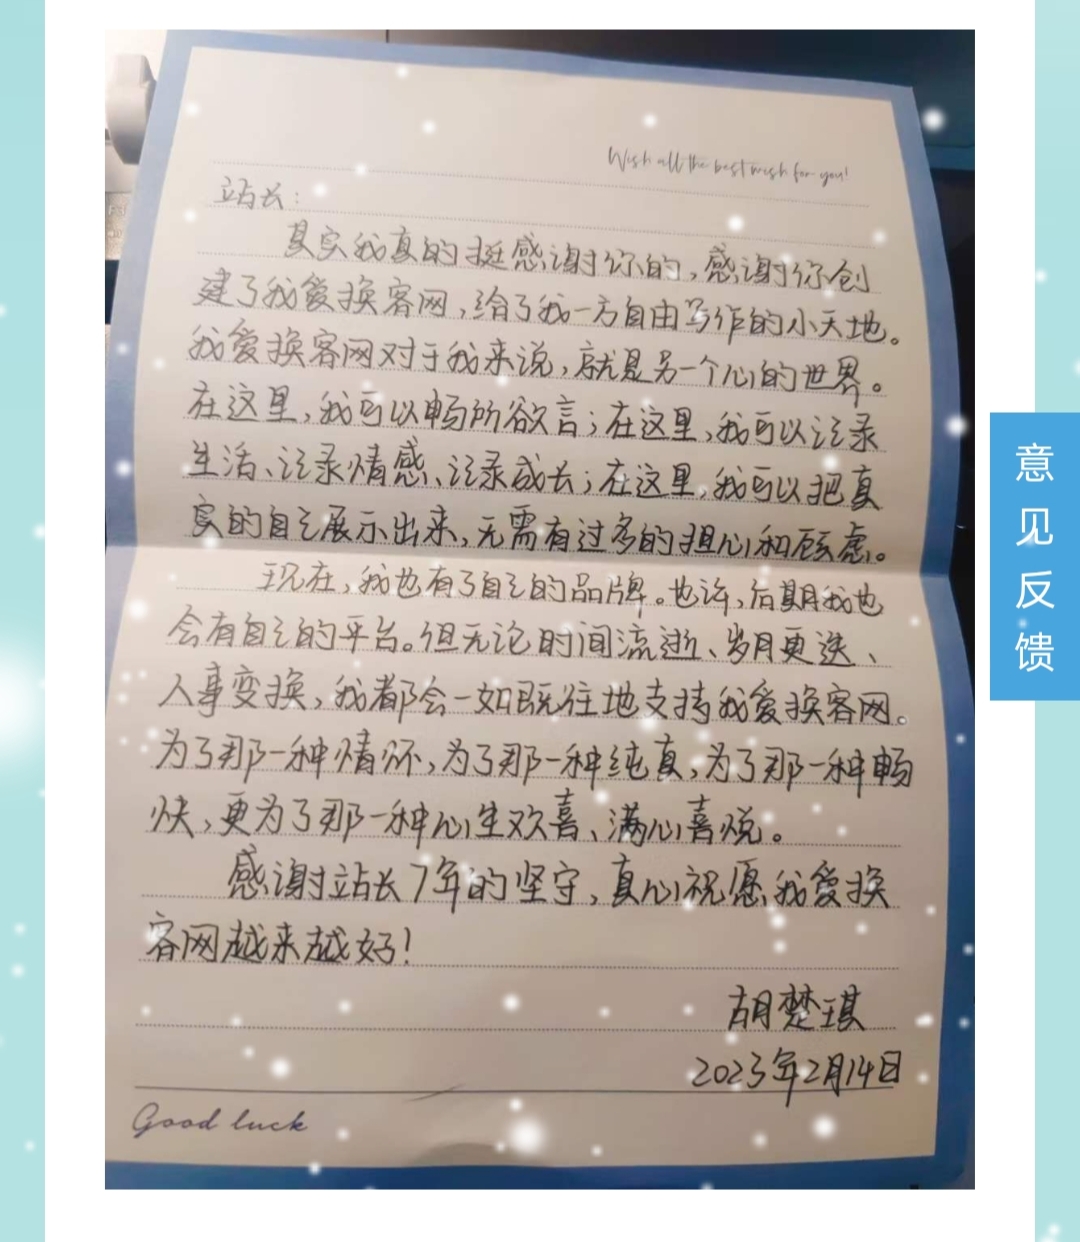 Wish all the best wish for you!
站长：
其实我真的挺感谢你的，感谢你创
建了我爱换客网，给了我一方自由写作的小天地。
我爱换客网对于我来说，就是另一个心的世界。
在这里，我可以畅所欲言；在这里，我可以记录
生活、记录情感、记录成长；在这里，我可以把真
实的自己展示出来，无需有过多的担心和顾虑。
现在，我也有了自己的品牌。也许，后期我也
会有自己的平台。但无论时间流逝、岁月更迭、
人事变换，我都会一如既往地支持我爱换客网。
为了那一种情怀，为了那一种纯真，为了那一种畅
快，更为了那一种心生欢喜、满心喜悦。
感谢站长7年的坚守，真心祝愿我爱换
客网越来越好！
胡楚琪
2023年2月14日
Good luck
意见反馈